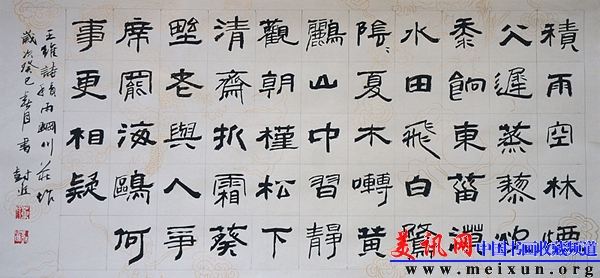 積雨空林煙
火遲蒸藜炊
黍餉東菑漠
水田飛白鷺
陰〻夏木囀黃
鸝山中習靜
觀朝槿松下
清齋折霜葵
埜老與人爭
席罷海鷗何
事更相疑
王維詩積雨輞川莊作
歲次癸巳春月書
美讯网 中国书画收藏频道
www.meixun.org